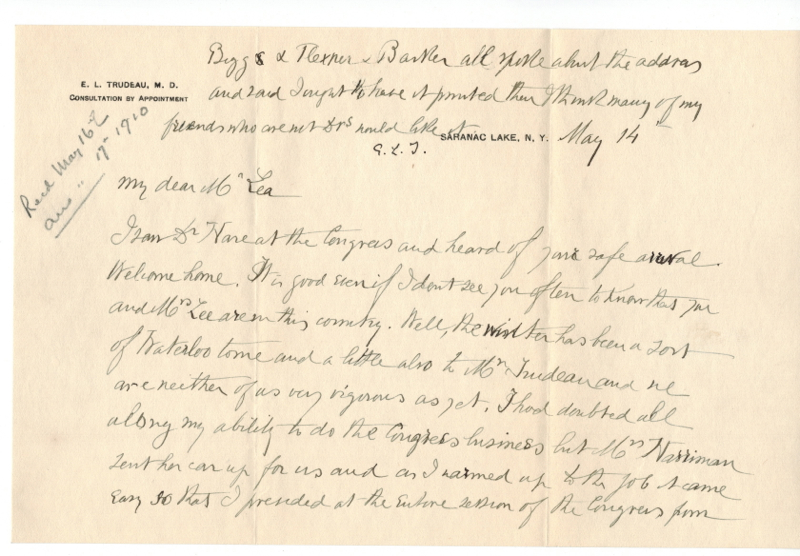 Biggs & Flexner & Barker all spoke about the address
and said I ought to have it printed then I think many of my
friends who are not Drs would like it.
E. L. T.
E. L. TRUDEAU, M. D.
CONSULTATION BY APPOINTMENT
Recd May 16th
ans " 17th 1910
SARANAC LAKE, N. Y. May 14th
My dear Mr Lea
I saw Dr Hare at the Congress and heard of your safe arrival.
Welcome home. It is good even if I dont see you often to know that you
and Mrs Lea are in this country. Well, the winter has been a sort
of Waterloo to me and a little also to Mrs Trudeau and we
are neither of us very vigorous as yet. I had doubted all
along my ability to do the Congress business but Mrs Harriman
sent her car up for us and as I warmed up to the job it came
easy so that I presided at the entire session of the Congress from